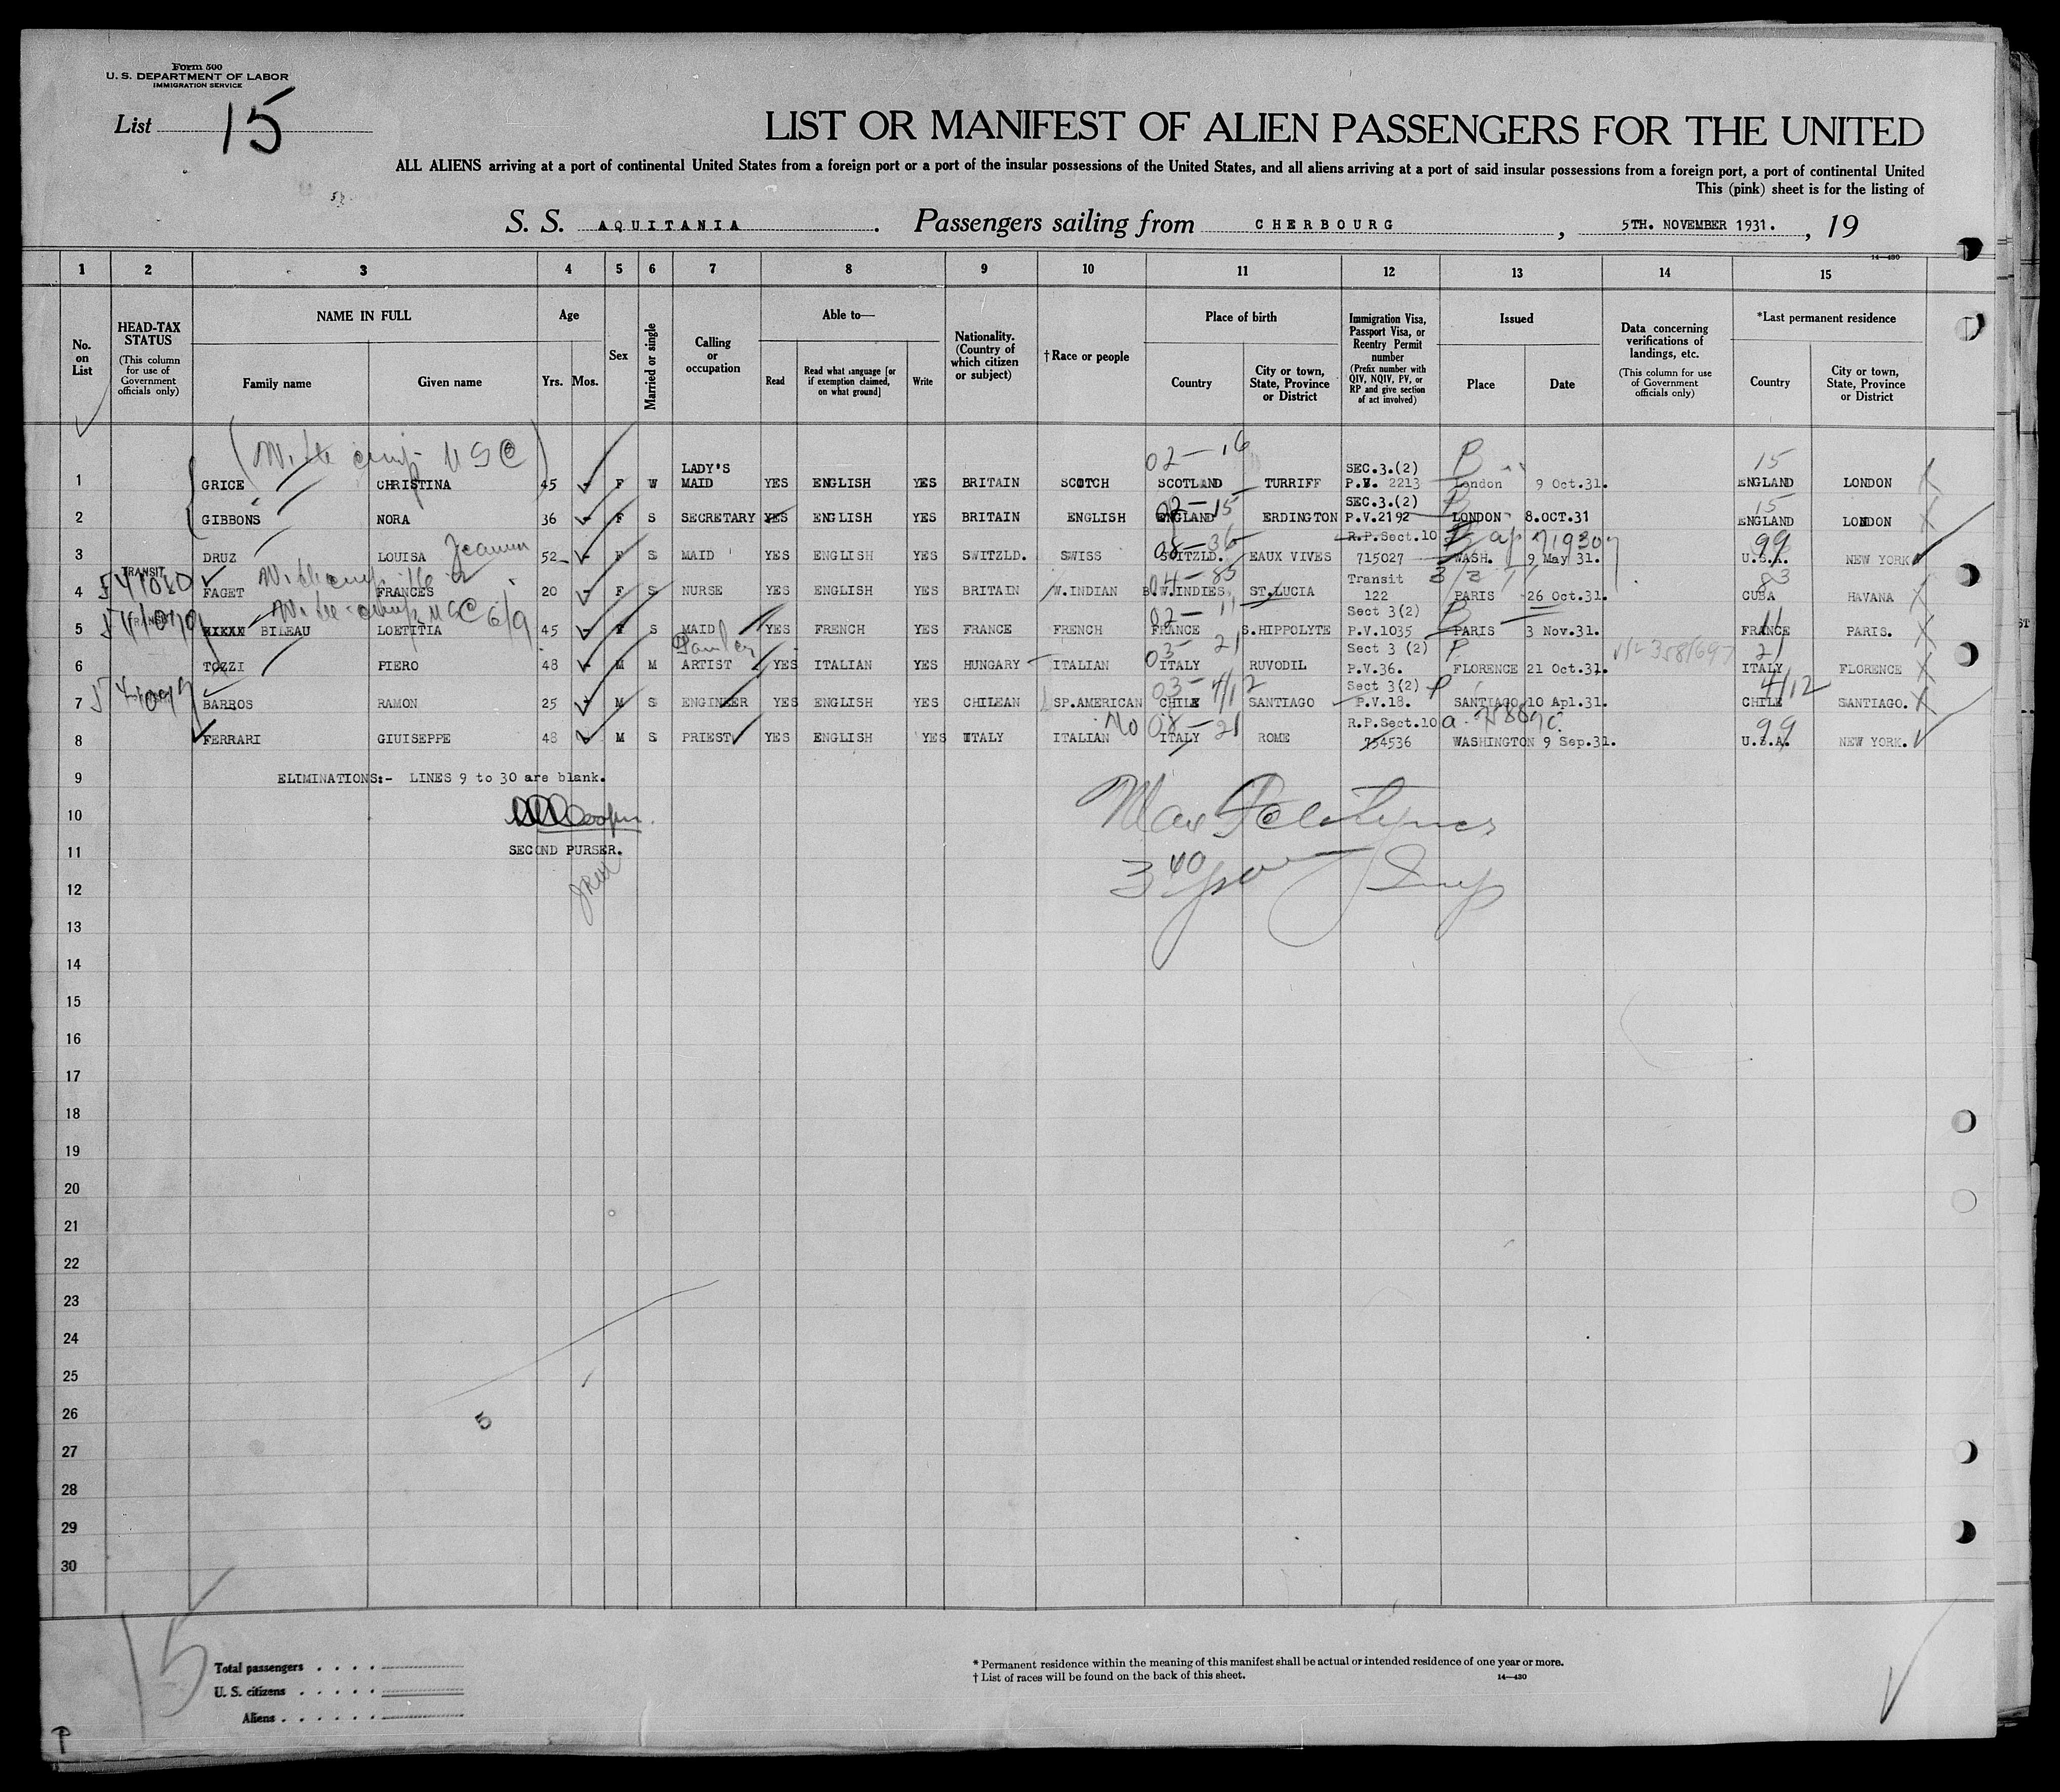 Form 500
U. S. DEPARTMENT OF LABOR
IMMIGRATION SERVICE
List 15
LIST OR MANIFEST OF ALIEN PASSENGERS FOR THE UNITED
ALL ALIENS arriving at a port of continental United States from a foreign port or a port of the insular possessions of the United States, and all aliens arriving at a port of said insular possessions from a foreign port, a port of continental United
This (pink) sheet is for the listing of
S. S. AQUITANIA. Passengers sailing from CHERBOURG, 5TH. NOVEMBER 1931., 19
14—430
1 2 3 4 5 6 7 8 9 10 11 12 13 14 15
No. on List
HEAD-TAX STATUS (This column for use of Government officials only)
NAME IN FULL Family name Given name
Age Yrs. Mos.
Sex
Married or single
Calling or occupation
Able to— Read Read what language [or if exemption claimed, on what ground] Write
Nationality. (Country of which citizen or subject)
† Race or people
Place of birth Country City or town, State, Province or District
Immigration Visa, Passport Visa, or Reentry Permit number (Prefix number with QIV, NQIV, PV, or RP and give section of act involved)
Issued Place Date
Data concerning verifications of landings, etc. (This column for use of Government officials only)
*Last permanent residence Country City or town, State, Province or District
USC 02—16 B 15
1 GRICE CHRISTINA 45 F W LADY'S MAID YES ENGLISH YES BRITAIN SCOTCH SCOTLAND TURRIFF SEC.3.(2) P.V. 2213 London 9 Oct.31. ENGLAND LONDON
02—15 B 15
2 GIBBONS NORA 36 F S SECRETARY YES ENGLISH YES BRITAIN ENGLISH ENGLAND ERDINGTON SEC.3.(2) P.V.2192 LONDON 8.OCT.31 ENGLAND LONDON
08—36 99
3 DRUZ LOUISA 52 F S MAID YES ENGLISH YES SWITZLD. SWISS SWITZLD. EAUX VIVES R.P.Sect.10 715027 WASH. 9 May 31. U.S.A. NEW YORK
TRANSIT 04—85 83
4 FAGET FRANCES 20 F S NURSE YES ENGLISH YES BRITAIN W.INDIAN B.W.INDIES ST.LUCIA Transit 122 PARIS 26 Oct.31. CUBA HAVANA
TRANSIT 02—11 B 11
5 BILEAU LOETITIA 45 F S MAID YES FRENCH YES FRANCE FRENCH FRANCE S.HIPPOLYTE Sect 3(2) P.V.1035 PARIS 3 Nov.31. FRANCE PARIS.
03—21 P 21
6 TOZZI PIERO 48 M M ARTIST YES ITALIAN YES HUNGARY ITALIAN ITALY RUVODIL Sect 3 (2) P.V.36. FLORENCE 21 Oct.31. ITALY FLORENCE
03—4/12 P 4/12
7 BARROS RAMON 25 M S ENGINEER YES ENGLISH YES CHILEAN SP.AMERICAN CHILE SANTIAGO Sect 3(2) P.V.18. SANTIAGO 10 Apl.31. CHILE SANTIAGO.
No 08—21 99
8 FERRARI GIUISEPPE 48 M S PRIEST YES ENGLISH YES ITALY ITALIAN ITALY ROME R.P.Sect.10 754536 WASHINGTON 9 Sep.31. U.S.A. NEW YORK.
9 ELIMINATIONS:- LINES 9 to 30 are blank.
10
11 SECOND PURSER.
12
13
14
15
16
17
18
19
20
21
22
23
24
25
26
27
28
29
30
5
15
Total passengers
U. S. citizens
Aliens
* Permanent residence within the meaning of this manifest shall be actual or intended residence of one year or more.
† List of races will be found on the back of this sheet. 14—430